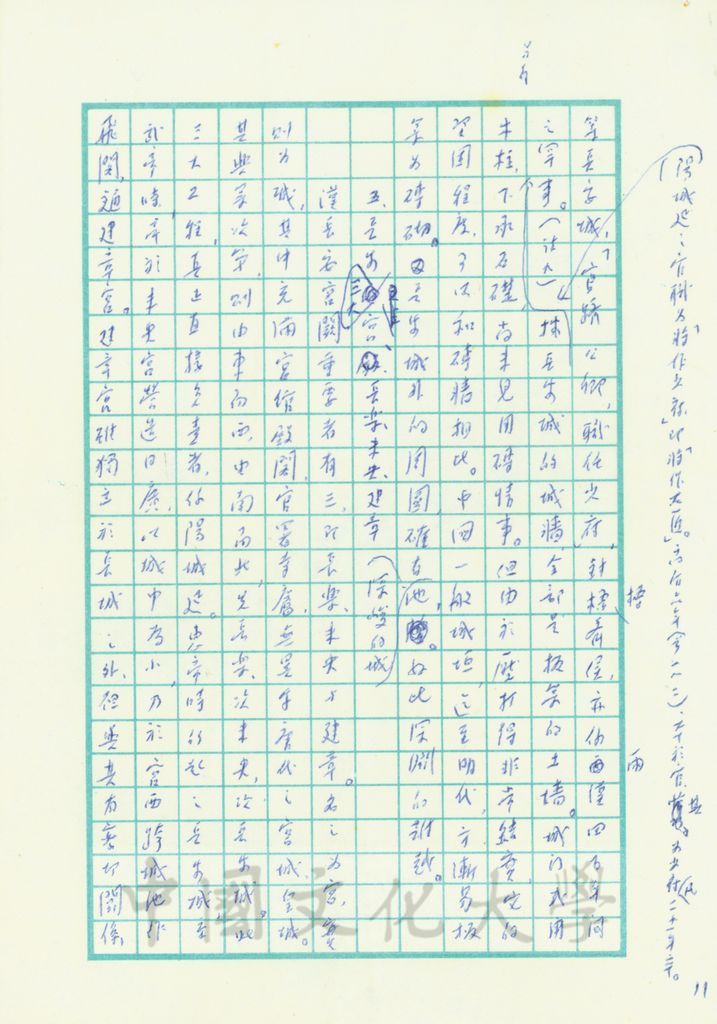 (陽城延之官職為將作少府,即「將作大匠」。高后六年(前一八二),卒於官其。為少府二十一年卒。
等長安城,「官躋公卿,職任少府,封梧齊侯,亦仍西漢四百年間
之罕事。(註九)按長安城的城牆,全部是板築的土墻。城門或用
木柱,下承石礎,尚未見用磚情事。但由於壓打得非常結實,它的
堅固程度,可以和磚牆相比。中國一般城垣,迄至明代,方漸易板
築為磚砌。長安城外的周圍確有池。如此深澗的難越。
五、長安三大宮 長樂、未央、建章(深峻的城
漢長安宮闕重要者有三,即長樂、未央與建章。名之為宮,實
則為城,其中充滿宮館殿閣,官署寺廨,無異乎唐代之宮城、皇城。
其興築次第,則由東而西,由南而北,先長樂,次未央,次長安城。此
三大工程,真正直接負責者,仍陽城延。惠帝時的新之長安城,至
武帝時,帝於未央宮營造日廣,以城中為小,乃於宮西跨城池作
飛閣,通建章宮。建章宮雖獨立於長城之外,但與其有密切關係,
梧
兩
11
中國文化大學